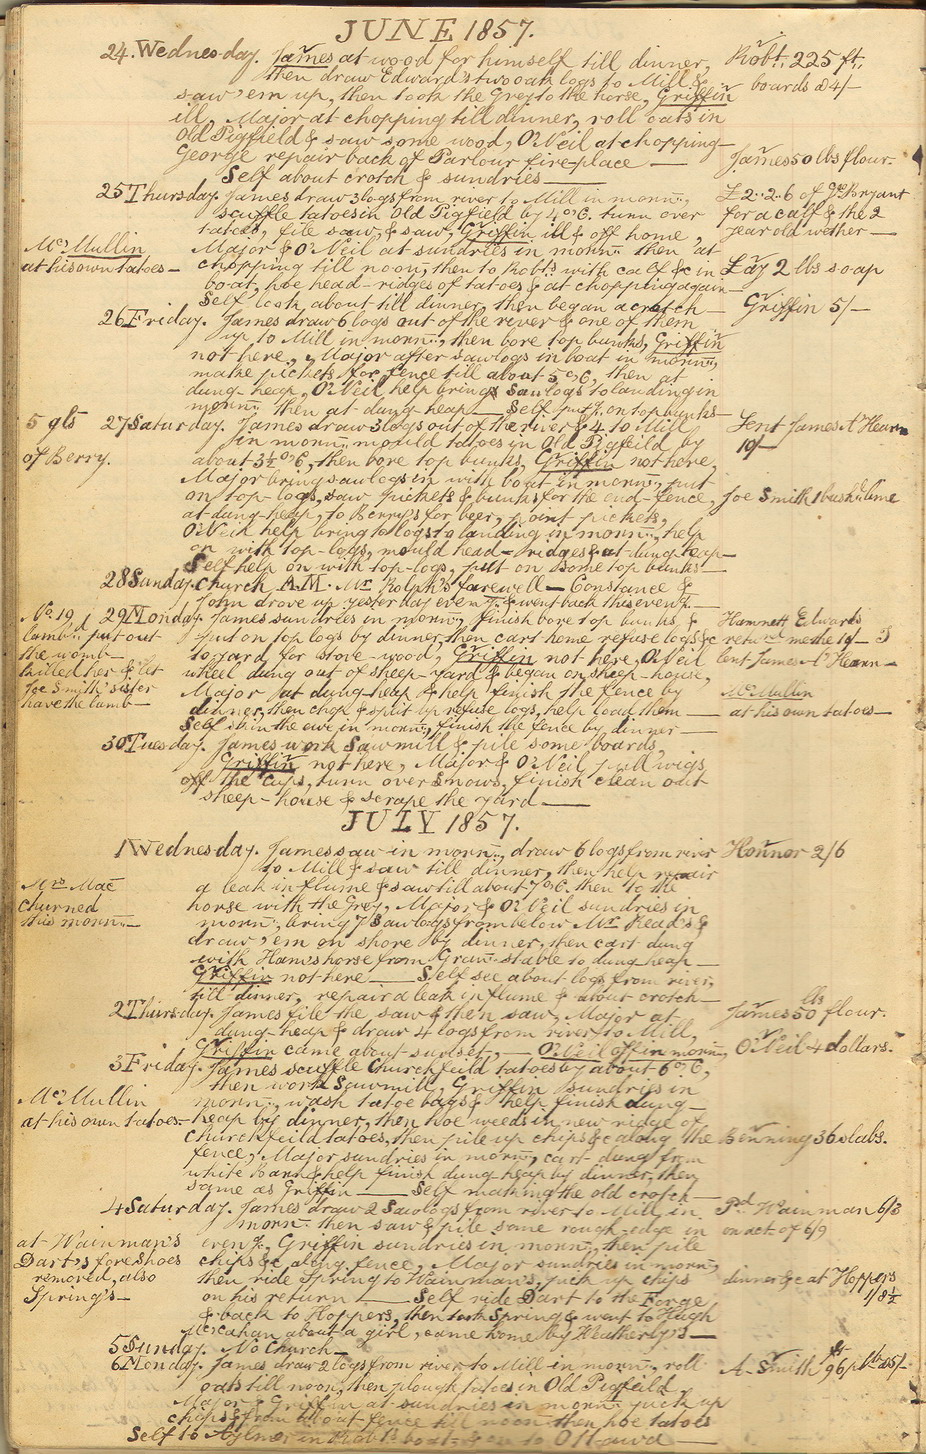 JUNE 1857.
24. Wednes-day. James at wood for himself till dinner,
then draw Edward's two oak logs to Mill, &
saw 'em up, then took the Grey to the horse, Griffin
ill, Major at chopping till dinner, roll oats in
Old Pigfield & saw some wood, O'Neil at chopping—
George repair back of Parlour fire-place —
Self about crotch & sundries —
Robt. 225 ft.
boards @ 4/—
James 50 lbs flour.
25 Thursday. James draw 3 logs from river to Mill in mornn.,
scuffle tatoes in Old Pigfield by 4 o'C. turn over
tatoes, file saw, & saw, Griffin ill & off home,
Major & O'Neil at sundries in mornn. then at
chopping till noon, then to Robt's with calf &c in
boat, hoe head-ridges of tatoes & at chopping again—
Self look about till dinner, then began a crotch—
McMullin
at his own tatoes—
£2..2..6 of Bryant
for a calf & the 2
year old wether —
Lay 2 lbs soap
Griffin 5/—
26 Friday. James draw 6 logs out of the river & one of them
up to Mill in mornn., then bore top bunks, Griffin
not here, Major after sawlogs in boat in mornn.,
make pickets for fence till about 5 o'C, then at
dung-heap, O'Neil help bring sawlogs to landing in
mornn. then at dung-heap — Self putg. on top bunks—
5 gls
of Berry.
27 Saturday. James draw 3 logs out of the river & 4 to Mill
in mornn., mould tatoes in Old Pigfeild by
about 3½ o'C, then bore top bunks, Griffin not here,
Major bring sawlogs in with boat in mornn., put
on top-logs, saw pickets & bunks for the end-fence,
at dung-heap, to Berry's for beer, point pickets,
O'Neil help bring to logs to landing in mornn., help
on with top-logs, mould head-ridges & at dung-heap—
Self help on with top-logs, put on some top bunks—
Lent James A'Hearn
10/—
Joe Smith 1 bushl. lime
28 Sunday. Church A.M. Mr Rolph's farewell — Constance &
John drove up yesterday eveng. & went back this eveng. —
No. 19
lamb.. put out
the womb—
killed her & let
Joe Smith' sister
have the lamb—
29 Monday. James sundries in mornn., finish bore top bunks, &
put on top logs by dinner, then cart home refuse logs &c
to yard for stove-wood, Griffin not here, O'Neil
wheel dung out of sheep-yard & began on sheep-house,
Major at dung-heap & help finish the fence by
dinner, then chop & split up refuse logs, help load them—
Self skin the ewe in mornn., finish the fence by dinner—
Hamnett Edwards
returnd me the 10/—
lent James A'Hearn—
McMullin
at his own tatoes—
30 Tuesday. James work Sawmill & pile some boards,
Griffin not here, Major & O'Neil pull wigs
off the Cups, turn over Snows, finish clean out
sheep-house & scrape the yard —
JULY 1857.
1 Wednesday. James saw in mornn., draw 6 logs from river
to Mill & saw till dinner, then help repair
a leak in flume & saw till about 7 o'C. then to the
horse with the Grey, Major & O'Neil sundries in
mornn., bring 7 Sawlogs from below Mr Read's &
draw 'em on shore by dinner, then cart dung
with Ham's horse from Gran. stable to dung-heap—
Griffin not here — Self see about logs from river,
till dinner, repair a leak in flume & about crotch—
Mrs Mac
churned
this mornn.—
Honnor 2/6
2 Thursday. James file the saw & then saw, Major at
dung-heap & draw 4 logs from river to Mill,
Griffin came about sunset, — O'Neil off in mornn.,
James 50 lbs flour.
O'Neil 4 dollars.
3 Friday. James scuffle Churchfeild tatoes by about 6 o'C,
then work Sawmill, Griffin sundries in
mornn., wash tatoe bags & help finish dung—
heap by dinner, then hoe weeds in new ridge of
Churchfeild tatoes, then pile up chips &c along the
fence, Major sundries in mornn., cart dung from
white Barn & help finish dung heap by dinner, then
same as Griffin — Self making the old crotch—
McMullin
at his own tatoes—
Benning 36 slabs.
4 Saturday. James draw 2 Sawlogs from river to Mill, in
mornn. then saw & pile some rough-edge in
eveng., Griffin sundries in mornn., then pile
chips &c along fence, Major sundries in mornn.,
then ride Spring to Wainman's, pick up chips
on his return — Self ride Dart to the Forge
& back to Hoppers, then took Spring & went to Hugh
McCahan about a girl, came home by Weatherly's—
at Wainman's
Dart's foreshoes
removed, also
Spring's—
Pd. Wainman 6/3
on act of 6/9
dinner &c at Hoppers
1/8½
5 Sunday. No Church—
6 Monday. James draw 2 logs from river to Mill in mornn., roll
oats till noon, then plough tatoes in Old Pigfeild,
Major & Griffin at sundries in mornn. pick up
chips & from about fence till noon then hoe tatoes
Self to Aylmer in Robt's boat & on to Ottawa —
A. Smith 96 ft. @ 5/—